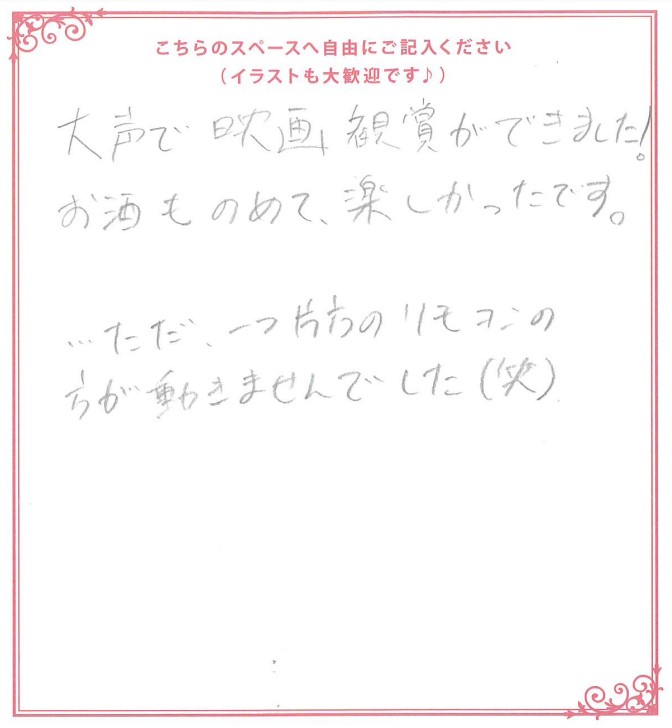 こちらのスペースへ自由にご記入ください
(イラストも大歓迎です♪)
大声で映画観賞ができました!
お酒ものめて、楽しかったです。
…ただ、一つ片方のリモコンの
方が動きませんでした(笑)